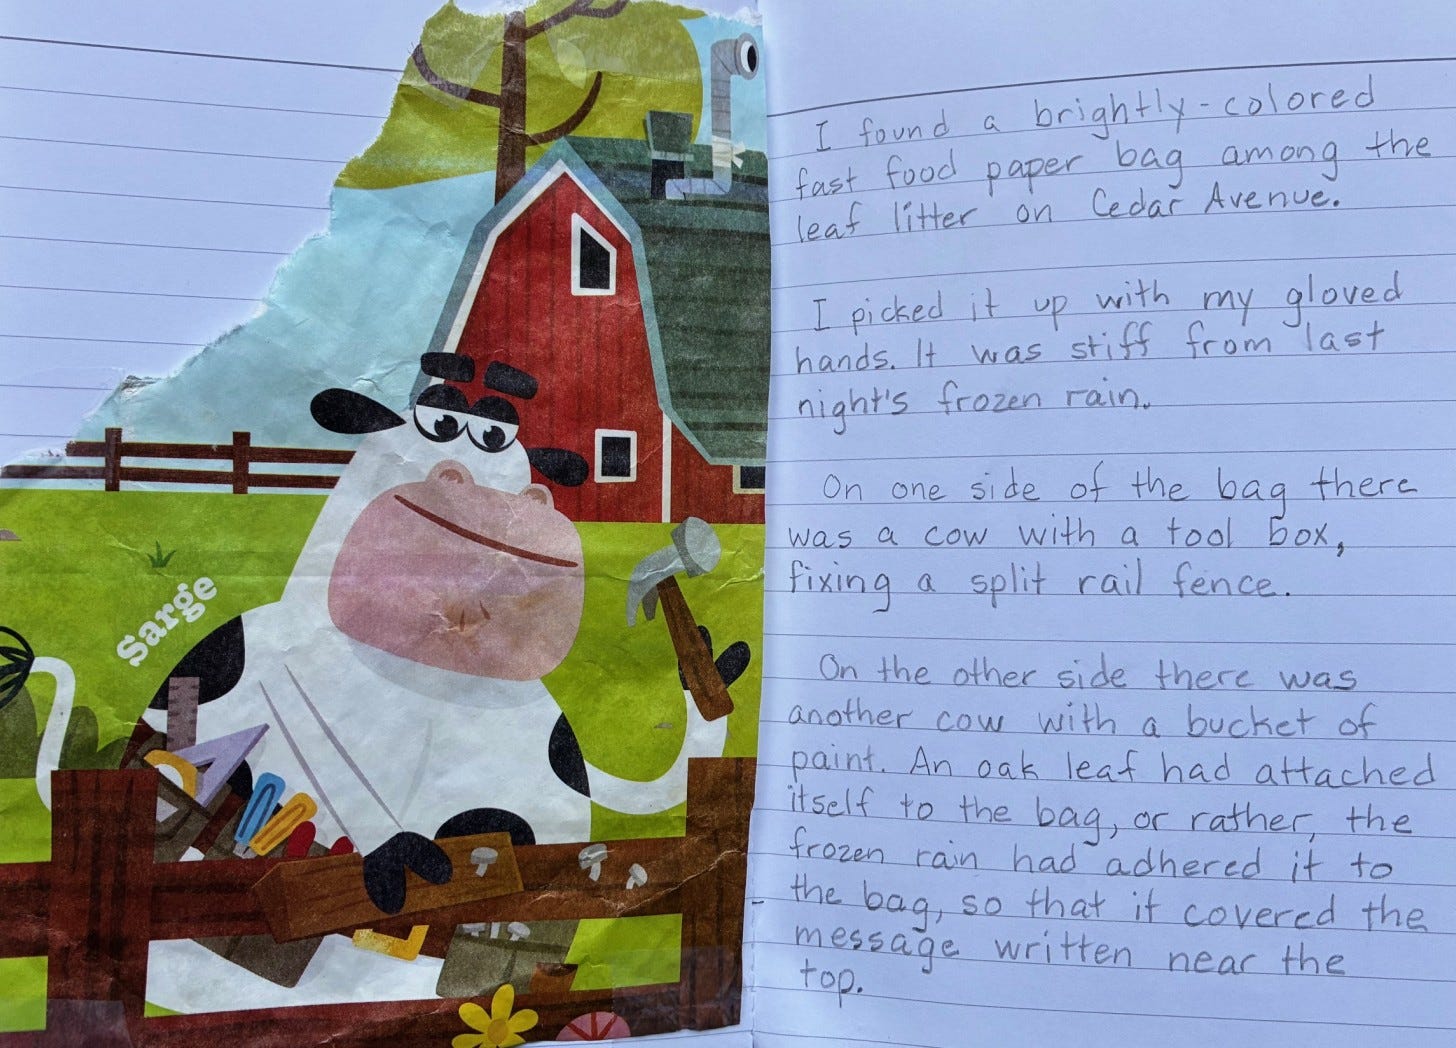 Sarge
I found a brightly-colored
fast food paper bag among the
leaf litter on Cedar Avenue.
I picked it up with my gloved
hands. It was stiff from last
night's frozen rain.
On one side of the bag there
was a cow with a tool box,
fixing a split rail fence.
On the other side there was
another cow with a bucket of
paint. An oak leaf had attached
itself to the bag, or rather, the
frozen rain had adhered it to
the bag, so that it covered the
message written near the
top.